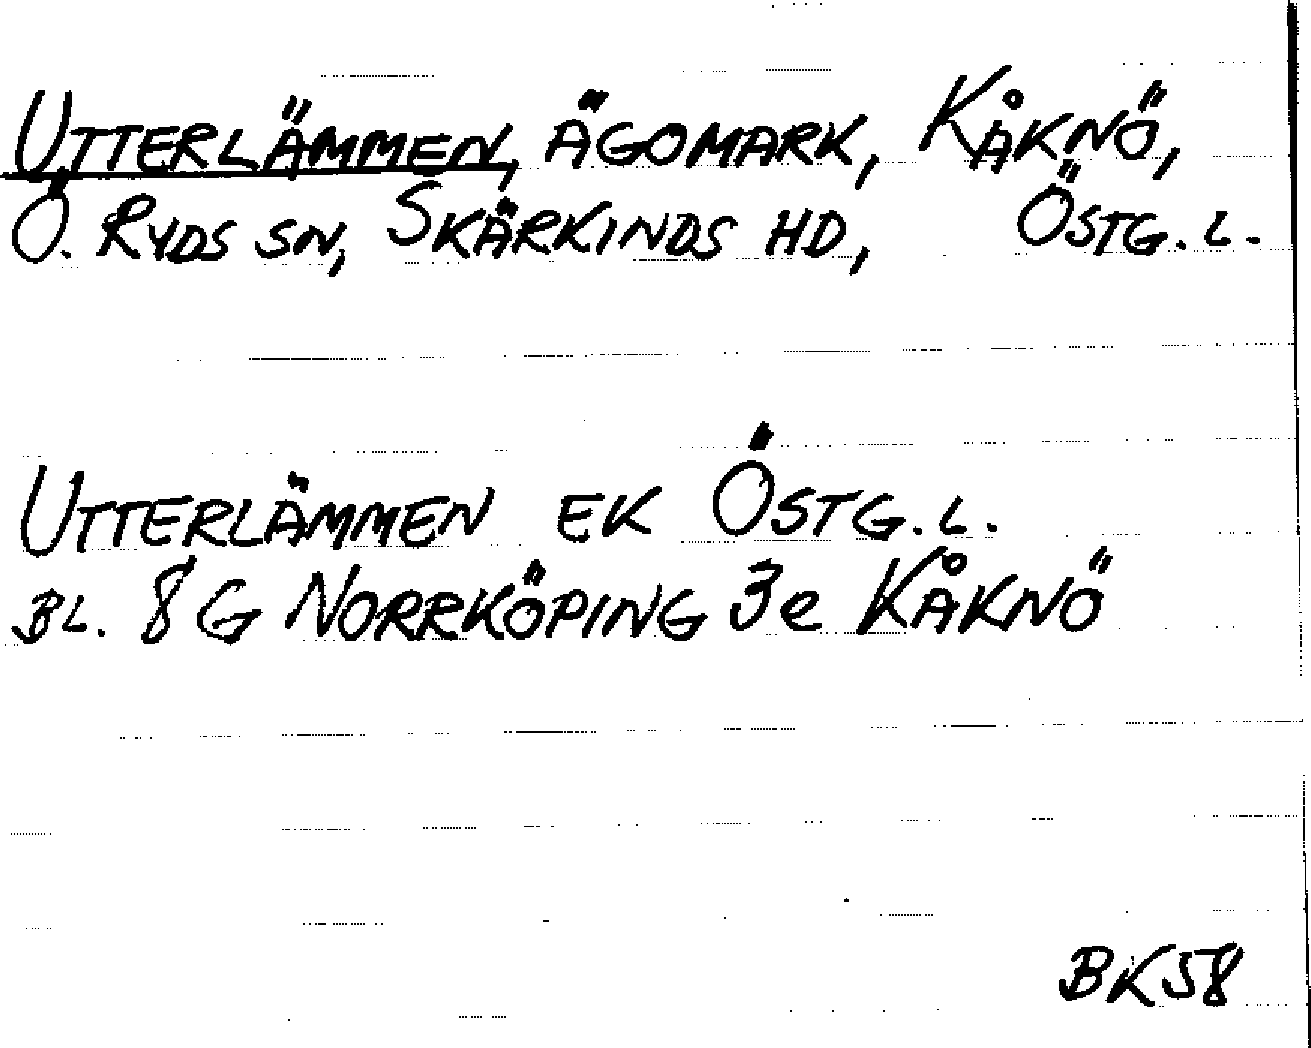 UTTERLÄMMEN, ÄGOMARK, KÅKNÖ,
Ö. RYDS SN, SKÄRKINDS HD, ÖSTG. L.
UTTERLÄMMEN EK ÖSTG. L.
BL. 8G NORRKÖPING 3e KÅKNÖ
BK58